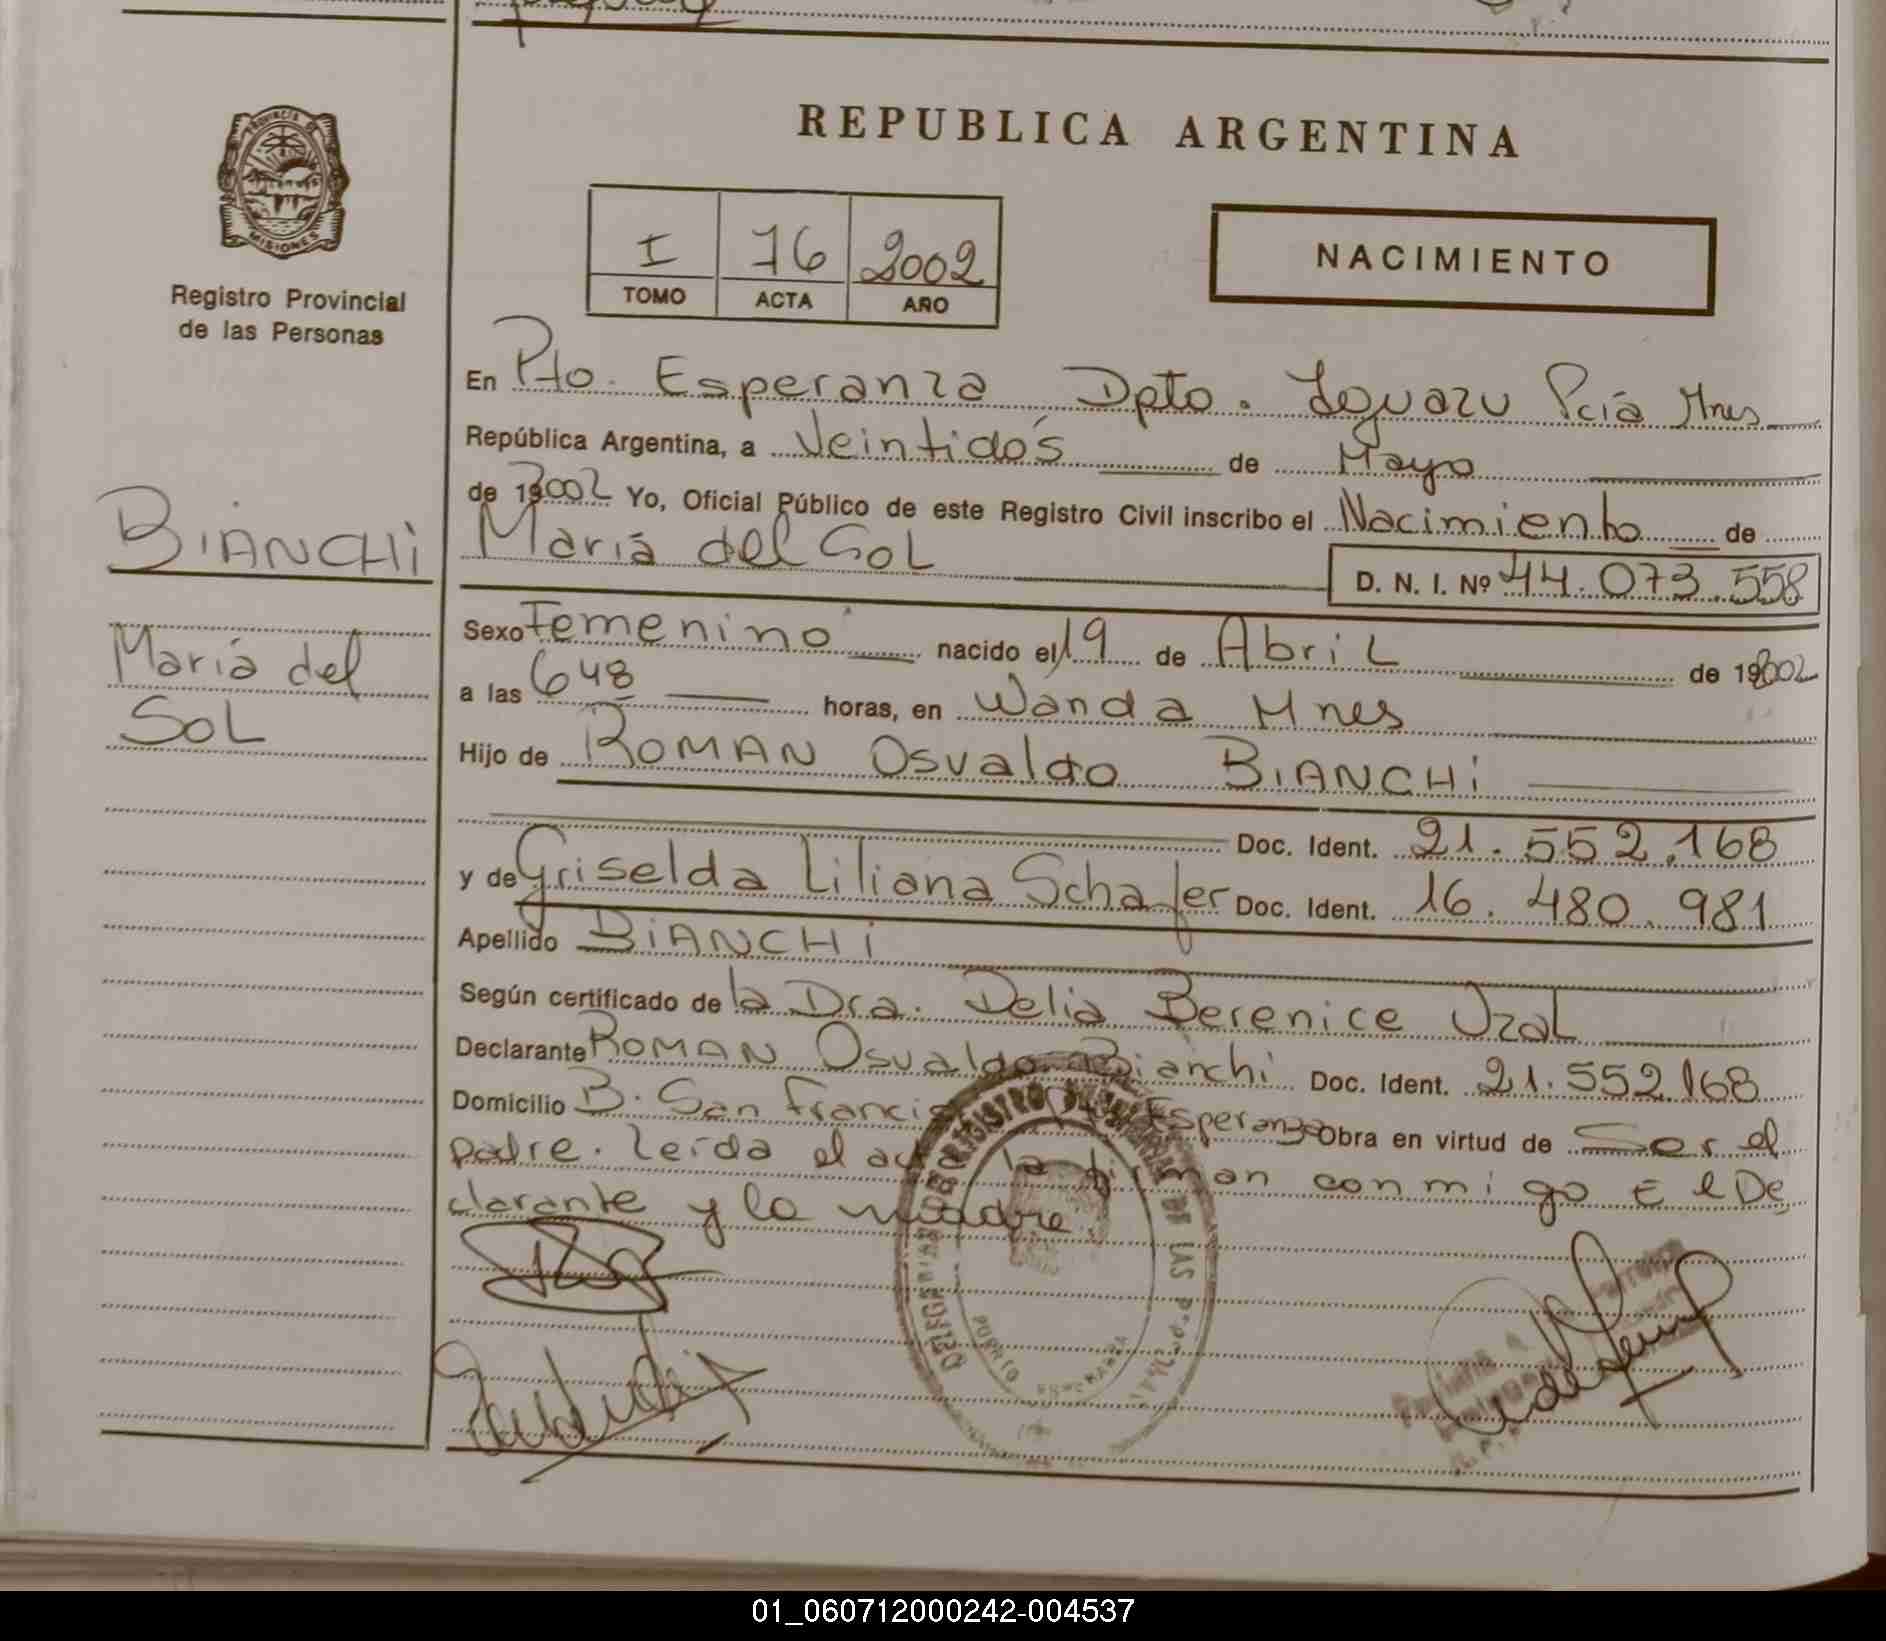 PROVINCIA DE
MISIONES
Registro Provincial
de las Personas
BIANCHi
María del
SoL
REPUBLICA ARGENTINA
I 76 2002
TOMO ACTA AÑO
NACIMIENTO
En Pto. Esperanza Dpto. Iguazu Pcía Mnes
República Argentina, a Veintidós de Mayo
de 192002 Yo, Oficial Público de este Registro Civil inscribo el Nacimiento de
María del SoL
D. N. I. Nº 44.073.558
Sexo Femenino nacido el 19 de Abril de 192002
a las 648 horas, en Wanda Mnes
Hijo de ROMAN Osvaldo BiANCHi
Doc. Ident. 21.552.168
y de Griselda Liliana Schafer Doc. Ident. 16.480.981
Apellido BiANCHi
Según certificado de la Dra. Delia Berenice Uzal
Declarante ROMAN Osvaldo Bianchi Doc. Ident. 21.552.168
Domicilio B. San Francis Esperanza Obra en virtud de Ser el
padre. leída el acta la firman conmigo El De
clarante y la madre.
REGISTRO DE LAS
PUERTO ESPERANZA
01_060712000242-004537